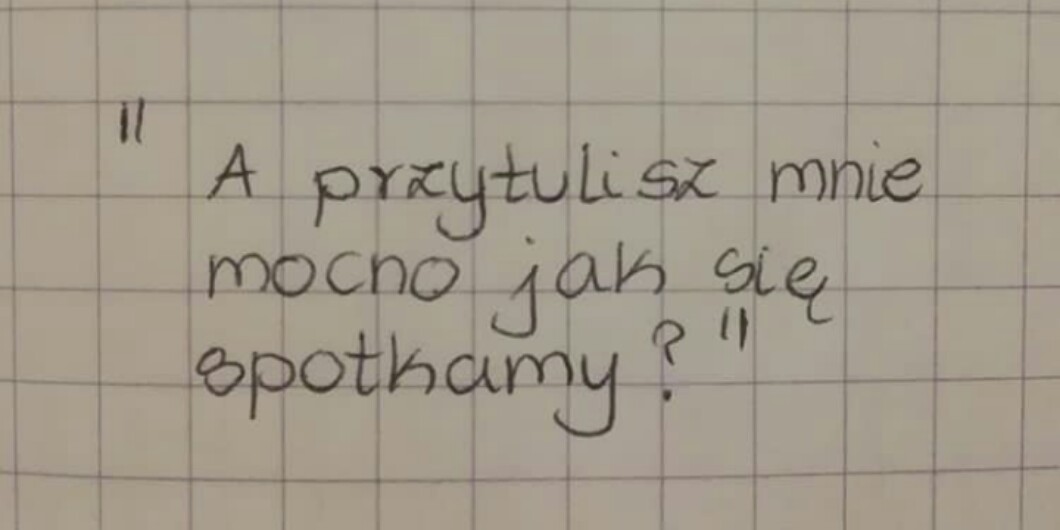 " A przytulisz mnie
mocno jak się
spotkamy?"